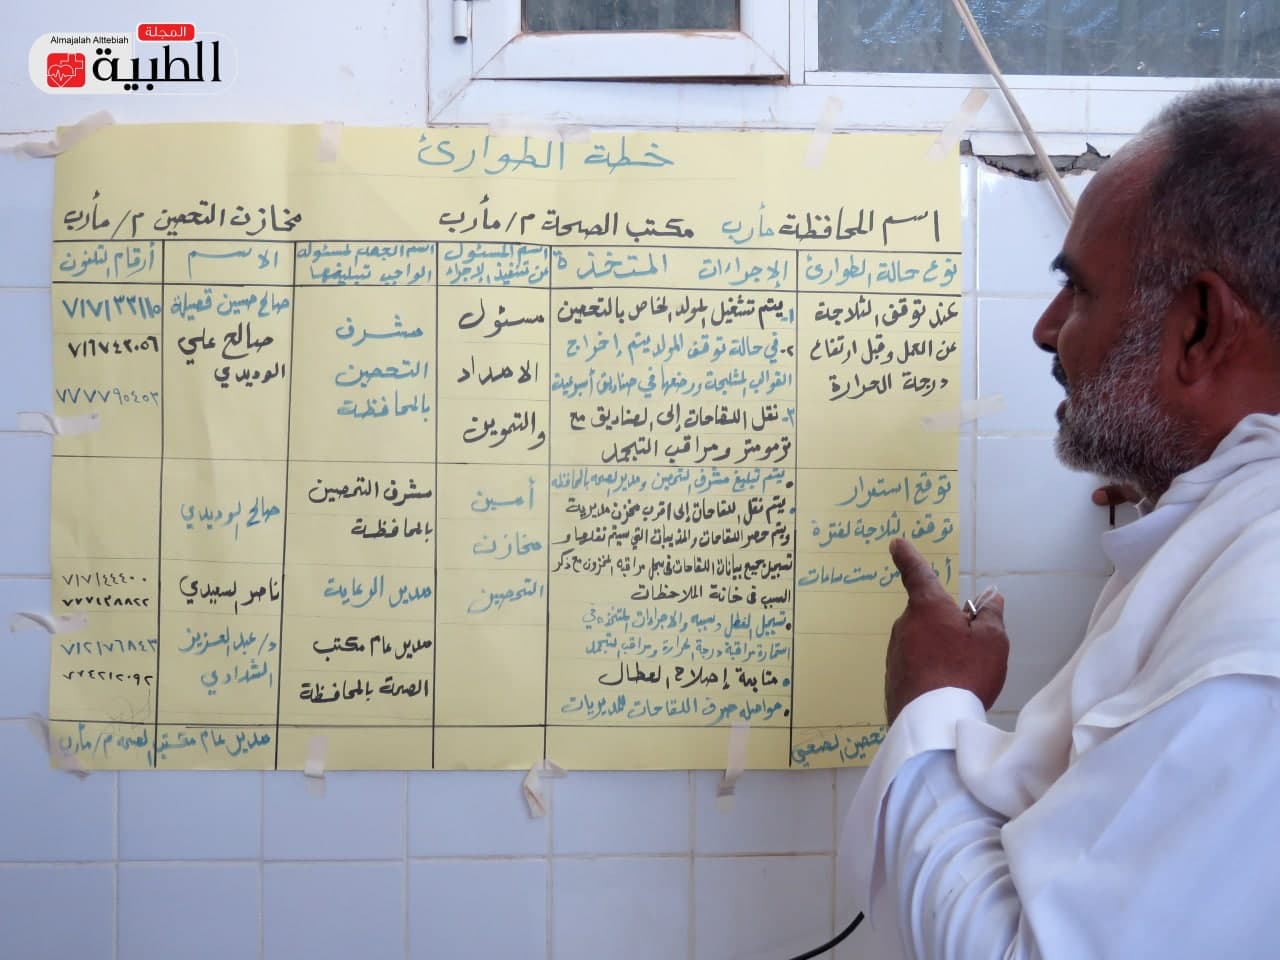 المجلة
Almajalah Alttebiah
الطبية
خطة الطوارئ
اسم المحافظة مأرب مكتب الصحة م/مأرب مخازن التحصين م/مأرب
نوع حالة الطوارئ
الإجراءات المتخذة
اسم المسئول
عن تنفيذ الإجراء
اسم الجهة المسئولة
الواجب تبليغها
الاسم
أرقام التلفون
عند توقف الثلاجة
عن العمل وقبل ارتفاع
درجة الحرارة
١- يتم تشغيل المولد الخاص بالتحصين
٢- في حالة توقف المولد يتم إخراج
القوالب المثلجة ووضعها في صناديق أسبوعية
٣- نقل اللقاحات إلى الصناديق مع
ترمومتر ومراقب التجمد
مسئول
الامداد
والتموين
مشرف
التحصين
بالمحافظة
صالح حسين
صالح علي
الوديدي
٧١٧١٣٣١١٥
٧١٦٧٤٢٠٥٦
٧٧٧٧٩٥٤٥٣
توقع استمرار
توقف الثلاجة لفترة
من ست ساعات
• يتم تبليغ مشرف التحصين ومدير الصحة بالمحافظة
• يتم نقل اللقاحات إلى اقرب مخزن مديرية
ويتم حصر اللقاحات والمذيبات التي سيتم نقلها و
تسجيل جميع بيانات اللقاحات في سجل مراقبة المخزون مع ذكر
السبب في خانة الملاحظات
• تسجيل العطل وسببه والاجراءات المتخذة في
استمارة مراقبة درجة الحرارة ومراقب التجمد
• متابعة إصلاح العطال
• مواصلة صرف اللقاحات للمديريات
أمين
مخازن
التحصين
مشرف التحصين
بالمحافظة
مدير الرعاية
مدير عام مكتب
الصحة بالمحافظة
صالح الوديدي
ناصر السعيدي
د/عبدالعزيز
الشدادي
٧١٧١٤٤٤٠٠
٧٧٧٤٣٨٨٢٢
٧١٢١٧٦٨٤٣
التحصين الصحي
مدير عام مكتب الصحة م/مأرب